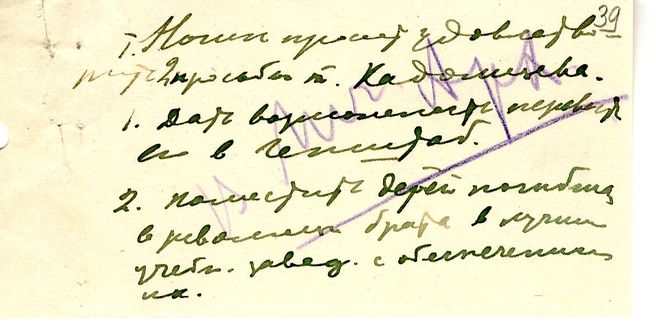 39
т. Ногин просит удовлетво-
рить 2 просьбы т. Кадомцева.
1. Дать возможность перевести
его в Генштаб.
2. поместить детей погибш
в революции брата в лучшие
учебн. завед. с обеспечением
их.